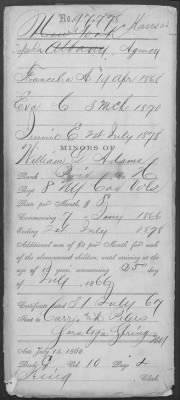 No. 97,778
New York Kansas
Topeka Albany, Agency
Francelia A. 14 Apr 1868
Eva C 3 Mch 1870
Jennie E 2d July 1878
MINORS OF
William D. Adams
Rank
Page 8 NY Cav Vols
Rate per Month $ 8
Commencing 7 Jany 1866
Ending 2d July 1878
Additional sum of $2 per Month for each
of the abovenamed children, until arriving at the
age of 16 years, commencing 25 day
of July, 1866
Certificate dated 31 July 67
Sent to Carr
Saratoga Springs
Act July 14, 1862
Book Vol. 10 Page
Clerk.